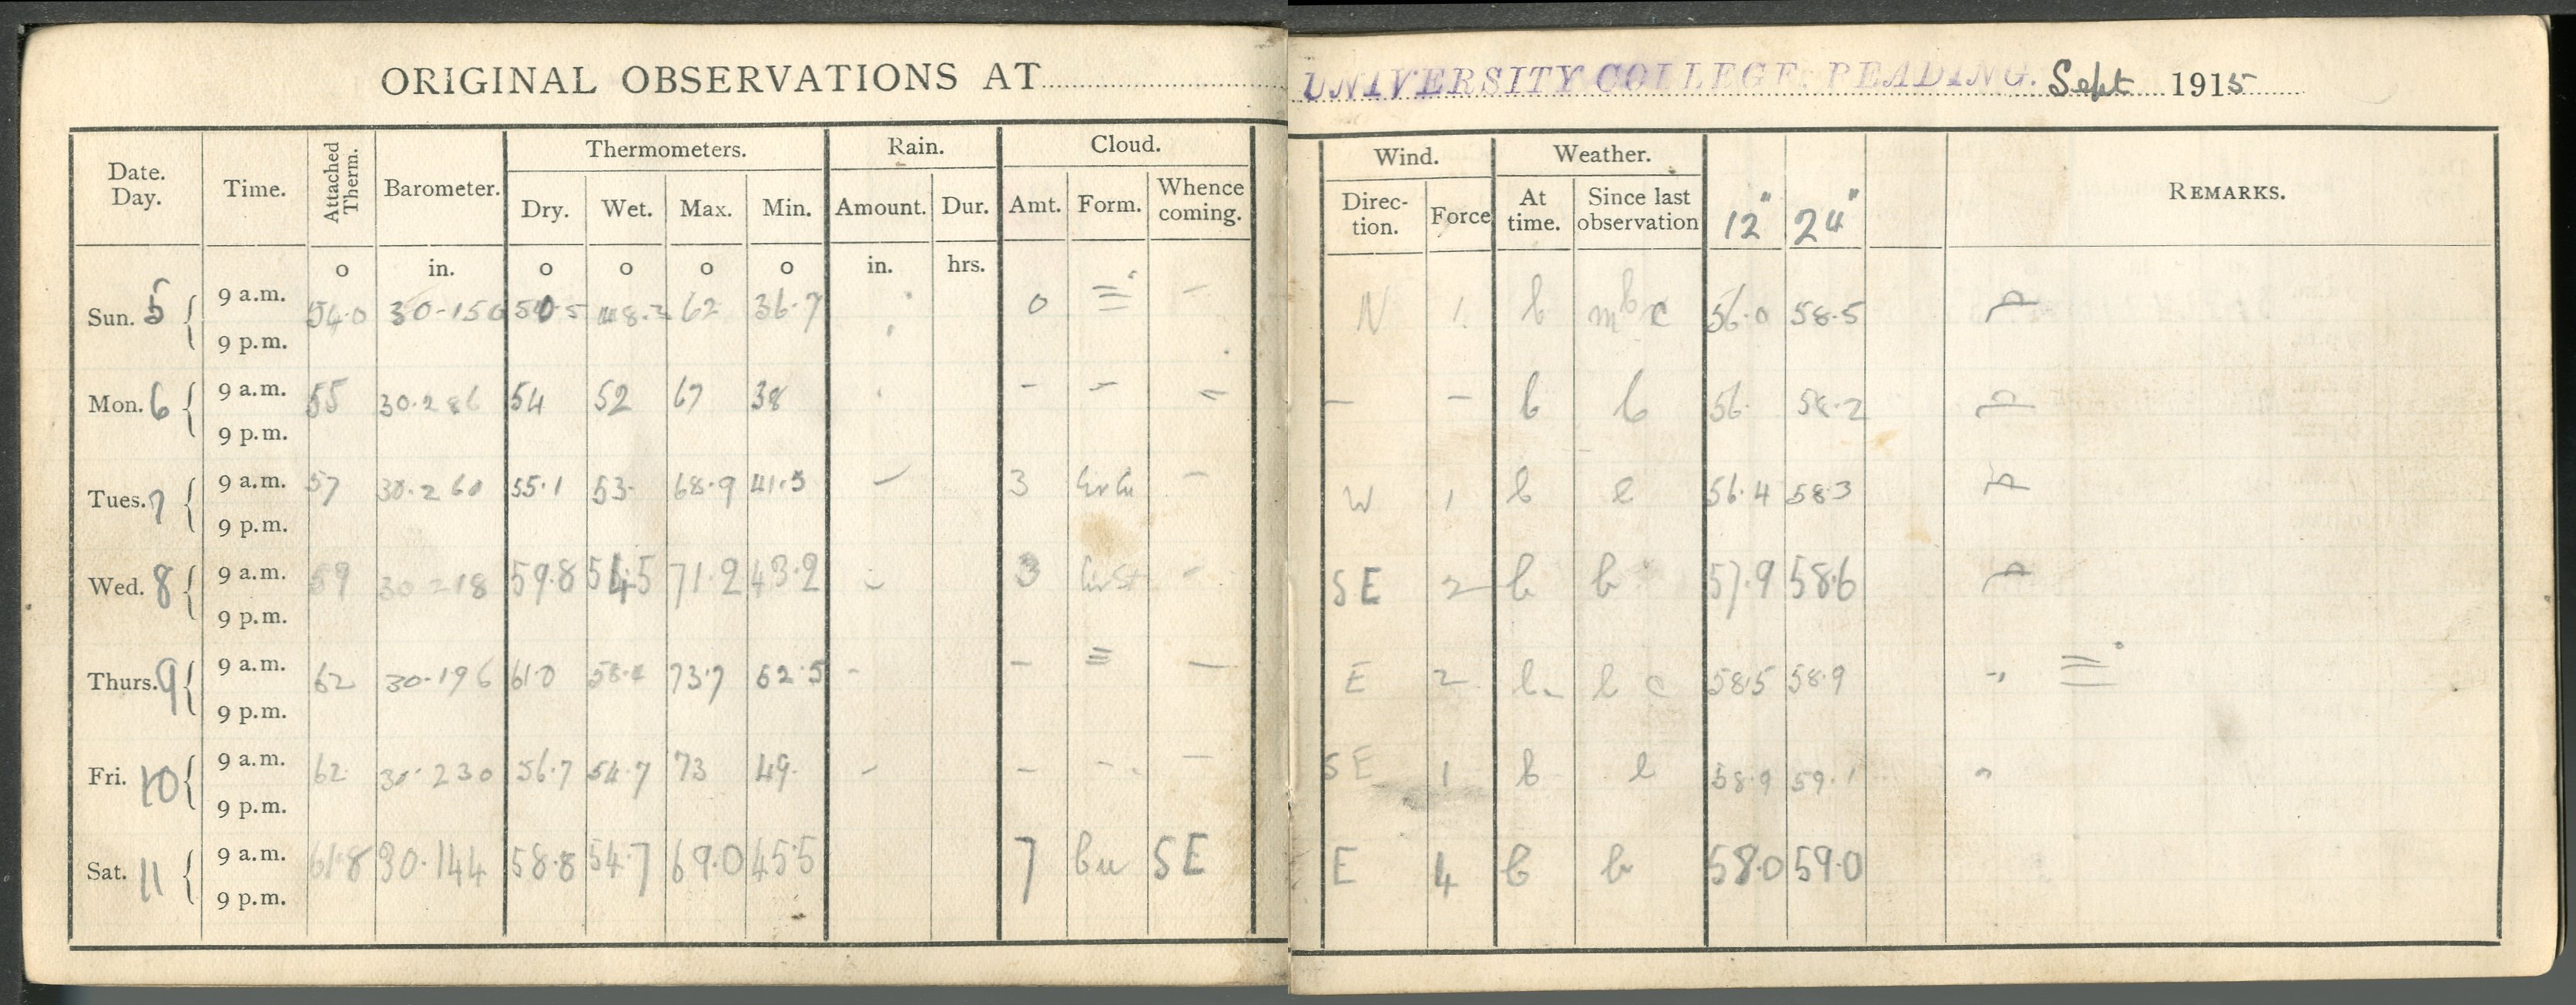 ORIGINAL OBSERVATIONS AT UNIVERSITY COLLEGE, READING. Sept 1915
Date. Day. Time. Attached Therm. Barometer. Thermometers. Rain. Cloud. Wind. Weather. 12" 24" REMARKS.
Dry. Wet. Max. Min. Amount. Dur. Amt. Form. Whence coming. Direc- tion. Force At time. Since last observation
o in. o o o o in. hrs.
Sun. 5 9 a.m. 54.0 30.150 62 36.7 0 ≡ - N 1 b m b c 56.0 58.5
9 p.m.
Mon. 6 9 a.m. 55 30.286 54 52 67 38 - - - - - b b 56. 58.2
9 p.m.
Tues. 7 9 a.m. 57 30.260 55.1 53. 68.9 41.5 - 3 - W 1 b 56.4 58.3
9 p.m.
Wed. 8 9 a.m. 59 30.218 59.8 54.5 71.2 43.2 - 3 - SE 2 b b 57.9 58.6
9 p.m.
Thurs. 9 9 a.m. 62 30.196 61.0 73.7 52.5 - - ≡ - E 2 b b c 58.5 58.9 " ≡
9 p.m.
Fri. 10 9 a.m. 62 30.230 56.7 54.7 73 49. - - - - SE 1 b 58.9 59.1 "
9 p.m.
Sat. 11 9 a.m. 61.8 30.144 58.8 54.7 69.0 45.5 7 SE E 4 b b 58.0 59.0
9 p.m.